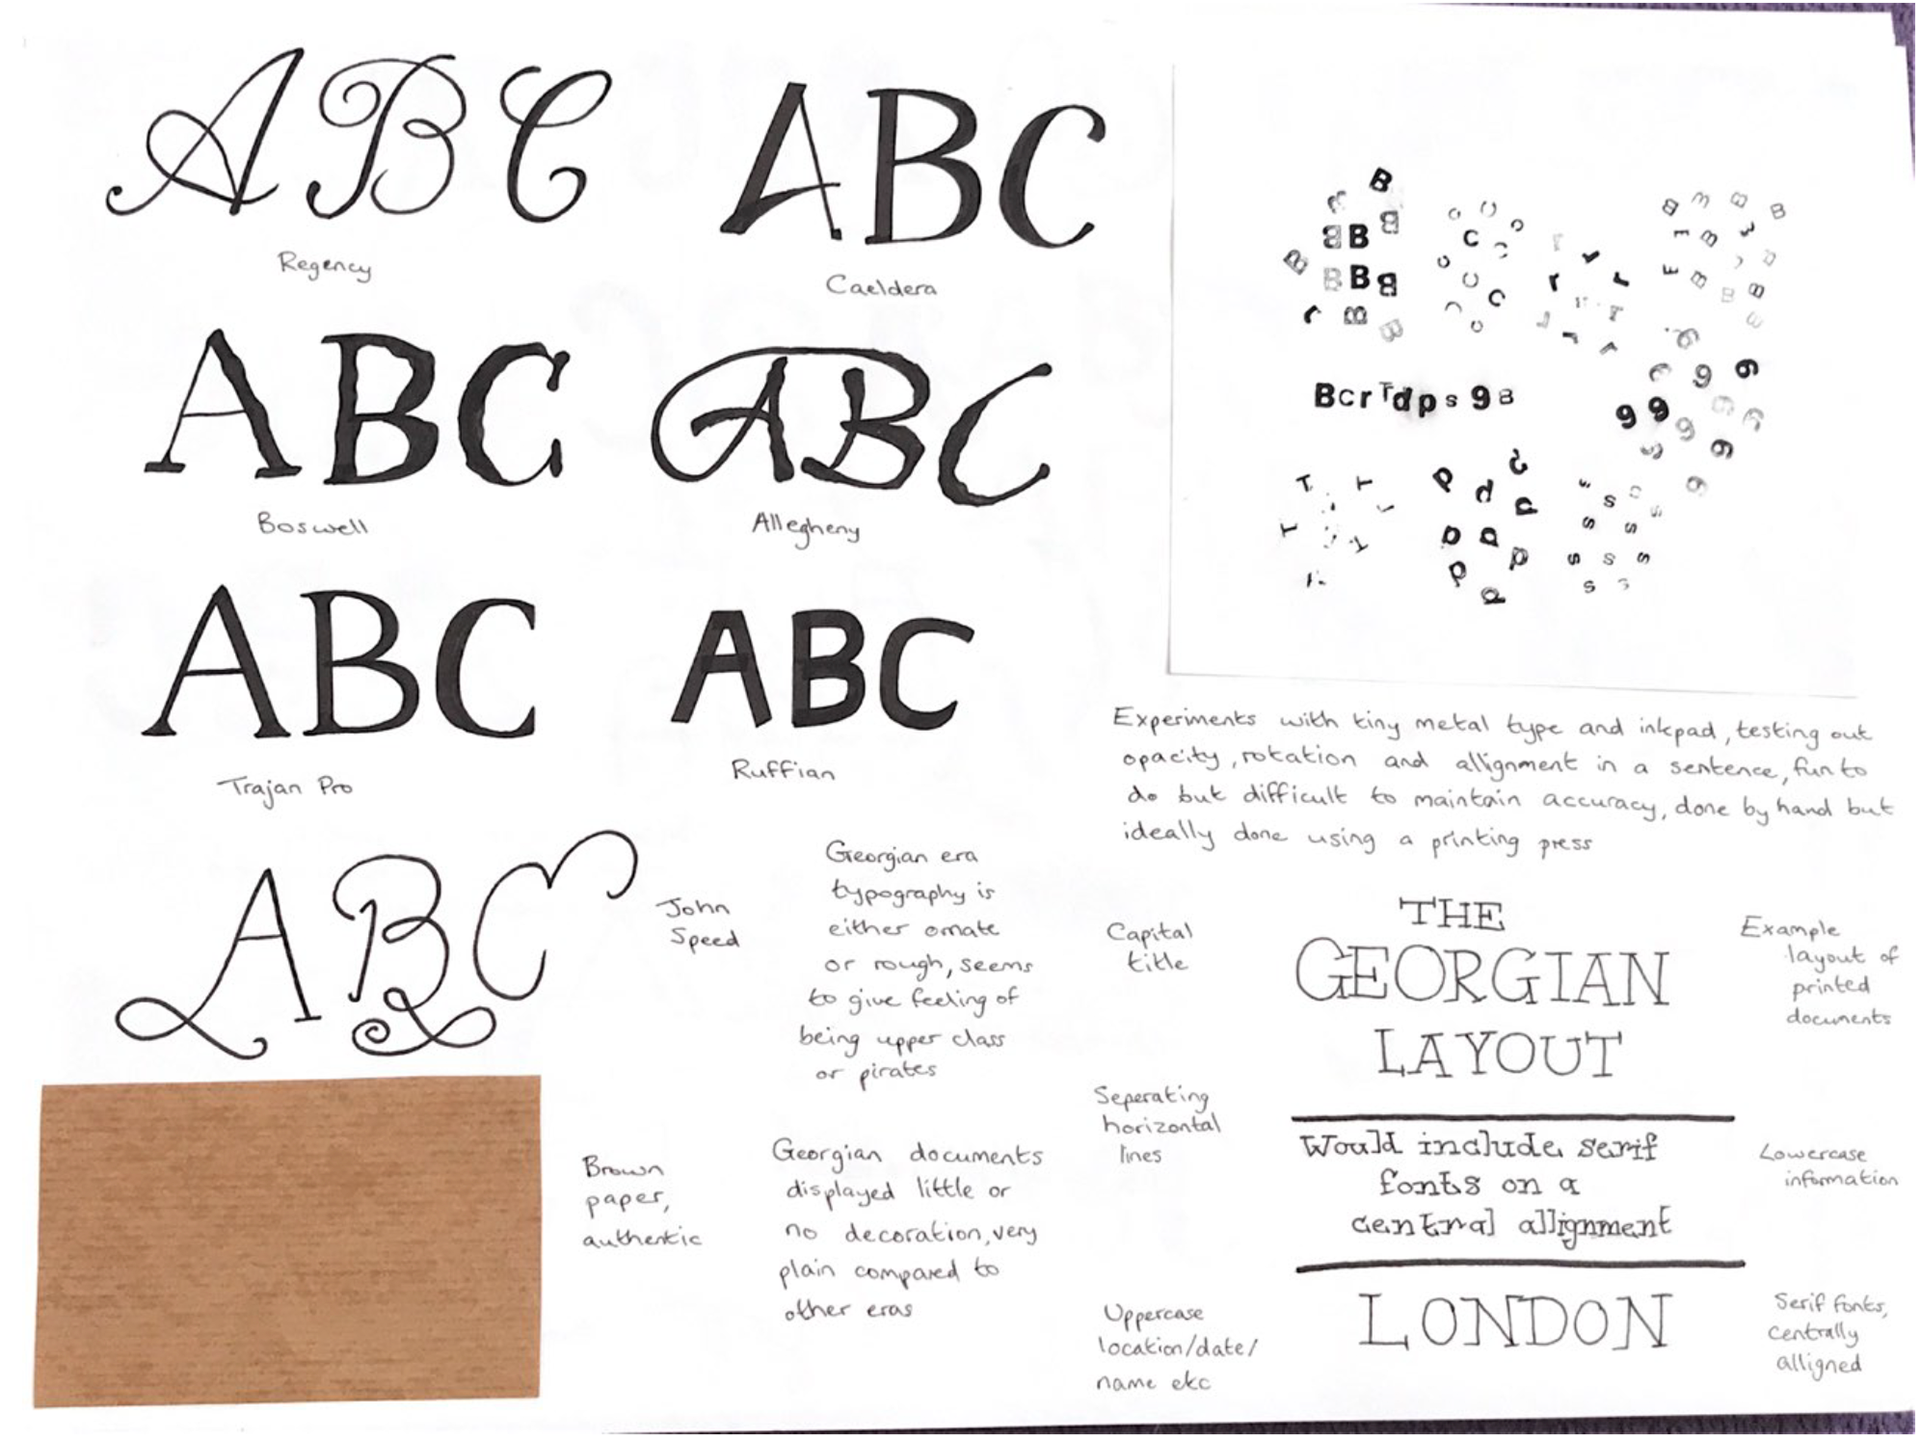 ABC
Regency
ABC
Caeldera
ABC
Boswell
ABC
Allegheny
ABC
Trajan Pro
ABC
Ruffian
ABC
John
Speed
BcrTdps9B
Experiments with tiny metal type and inkpad, testing out
opacity, rotation and allignment in a sentence, fun to
do but difficult to maintain accuracy, done by hand but
ideally done using a printing press
Georgian era
typography is
either ornate
or rough, seems
to give feeling of
being upper class
or pirates
Brown
paper,
authentic
Georgian documents
displayed little or
no decoration, very
plain compared to
other eras
Capital
title
Seperating
horizontal
lines
Uppercase
location/date/
name etc
THE
GEORGIAN
LAYOUT
Would include serif
fonts on a
central allignment
LONDON
Example
layout of
printed
documents
Lowercase
information
Serif fonts,
centrally
alligned